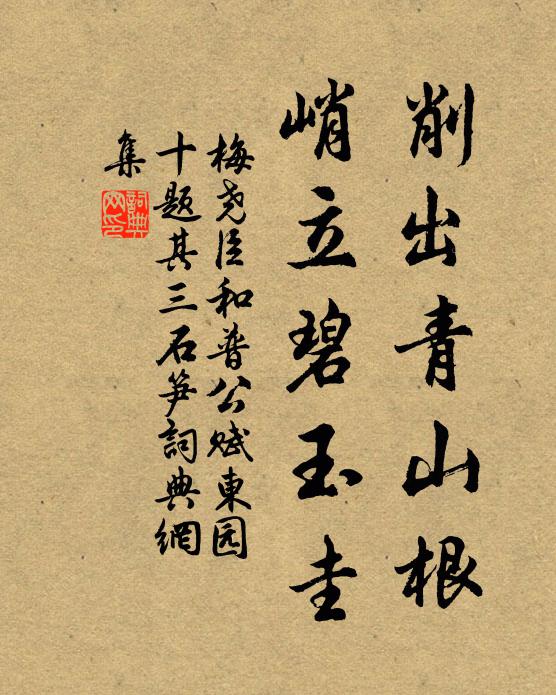 削出青山根
峭立碧玉圭
梅尧臣和普公赋東园
十题其三石笋詞典網
集
詞典
网印